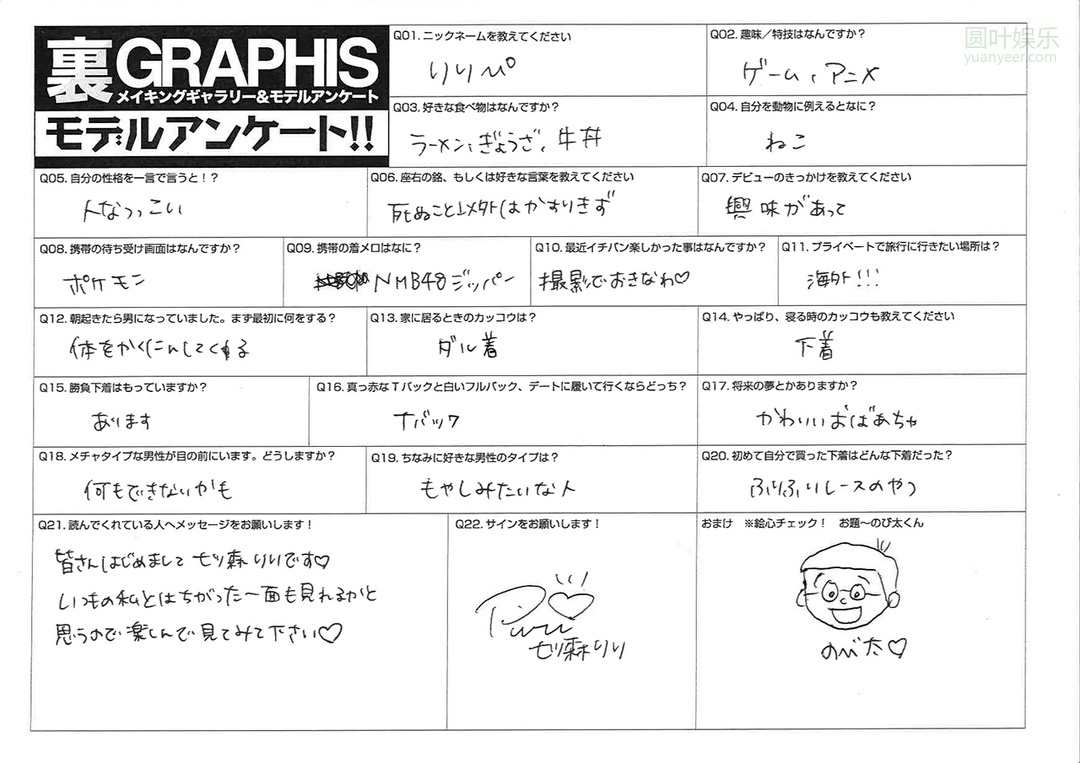 圆叶娱乐
yuanyeer.com
裏GRAPHIS
メイキングギャラリー&モデルアンケート
モデルアンケート!!
Q01. ニックネームを教えてください
りりぴ
Q02. 趣味／特技はなんですか？
ゲーム、アニメ
Q03. 好きな食べ物はなんですか？
ラーメン、ぎょうざ、牛丼
Q04. 自分を動物に例えるとなに？
ねこ
Q05. 自分の性格を一言で言うと！？
人なつっこい
Q06. 座右の銘、もしくは好きな言葉を教えてください
死ぬこと以外はかすりきず
Q07. デビューのきっかけを教えてください
興味があって
Q08. 携帯の待ち受け画面はなんですか？
ポケモン
Q09. 携帯の着メロはなに？
NMB48ジッパー
Q10. 最近イチバン楽しかった事はなんですか？
撮影でおきなわ♡
Q11. プライベートで旅行に行きたい場所は？
海外!!!
Q12. 朝起きたら男になっていました。まず最初に何をする？
体をかくにんしてくる
Q13. 家に居るときのカッコウは？
ダル着
Q14. やっぱり、寝る時のカッコウも教えてください
下着
Q15. 勝負下着はもっていますか？
あります
Q16. 真っ赤なTバックと白いフルバック、デートに履いて行くならどっち？
Tバック
Q17. 将来の夢とかありますか？
かわいいおばあちゃ
Q18. メチャタイプな男性が目の前にいます。どうしますか？
何もできないかも
Q19. ちなみに好きな男性のタイプは？
もやしみたいな人
Q20. 初めて自分で買った下着はどんな下着だった？
ふりふりレースのやつ
Q21. 読んでくれている人へメッセージをお願いします！
皆さんはじめまして 七ツ森りりです♡
いつもの私とはちがった一面も見れるかと
思うので楽しんで見てみて下さい♡
Q22. サインをお願いします！
七ツ森りり
おまけ ※絵心チェック！ お題〜のび太くん
のび太♡